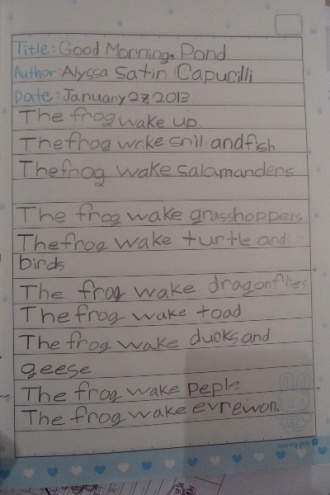 Title: Good Morning, Pond
Author: Alyssa Satin Capucilli
Date: January 27, 2013
The frog wake up
The frog wake snil and fish
The frog wake salamanders
The frog wake grasshoppers
The frog wake turtle and
birds
The frog wake dragonflies
The frog wake toad
The frog wake ducks and
geese
The frog wake peple
The frog wake evrewon